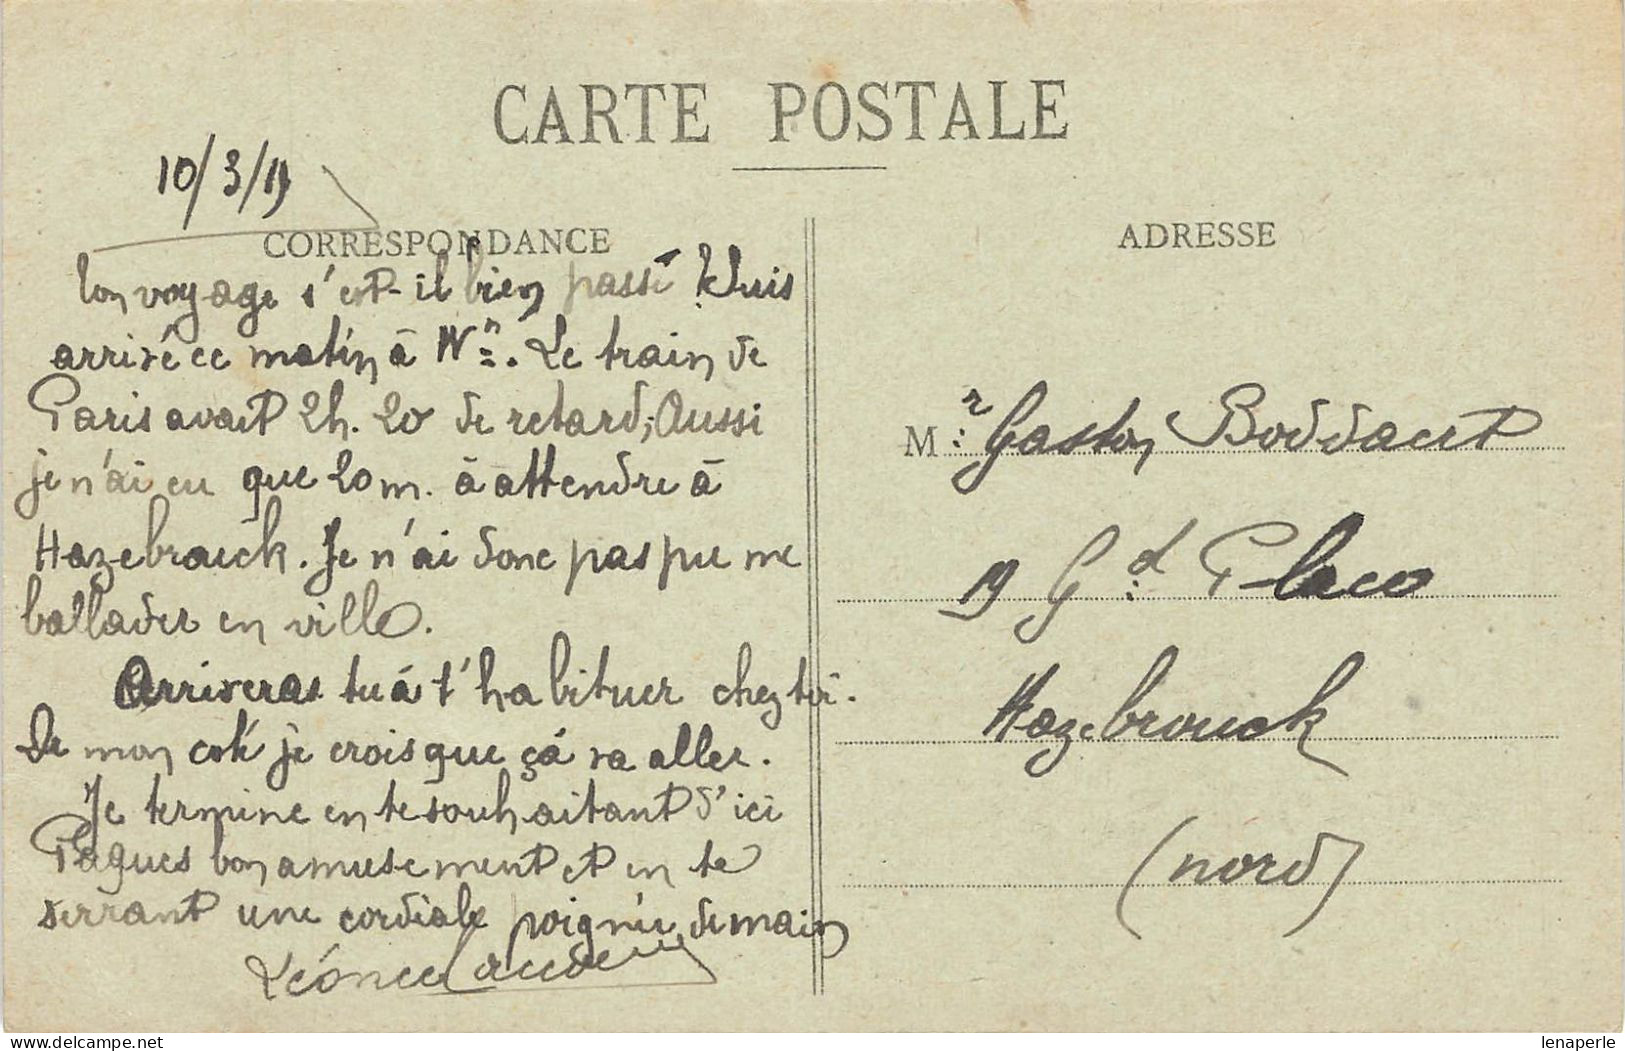 CARTE POSTALE
10/3/19
CORRESPONDANCE
ADRESSE
Ton voyage s'est-il bien passé ? Suis
arrivé ce matin à Wn. Le train de
Paris avait 2h. 20 de retard; Aussi
je n'ai eu que 20 m. à attendre à
Hazebrouck. Je n'ai donc pas pu me
ballader en ville.
Arriveras tu à t'habituer chez toi.
De mon coté je crois que çà va aller.
Je termine en te souhaitant d'ici
Pâques bon amusement et en te
serrant une cordiale poignée de main
Léonce
Mr: Gaston Boddaert
19 Gd: Place
Hazebrouck
(nord)
lenaperle